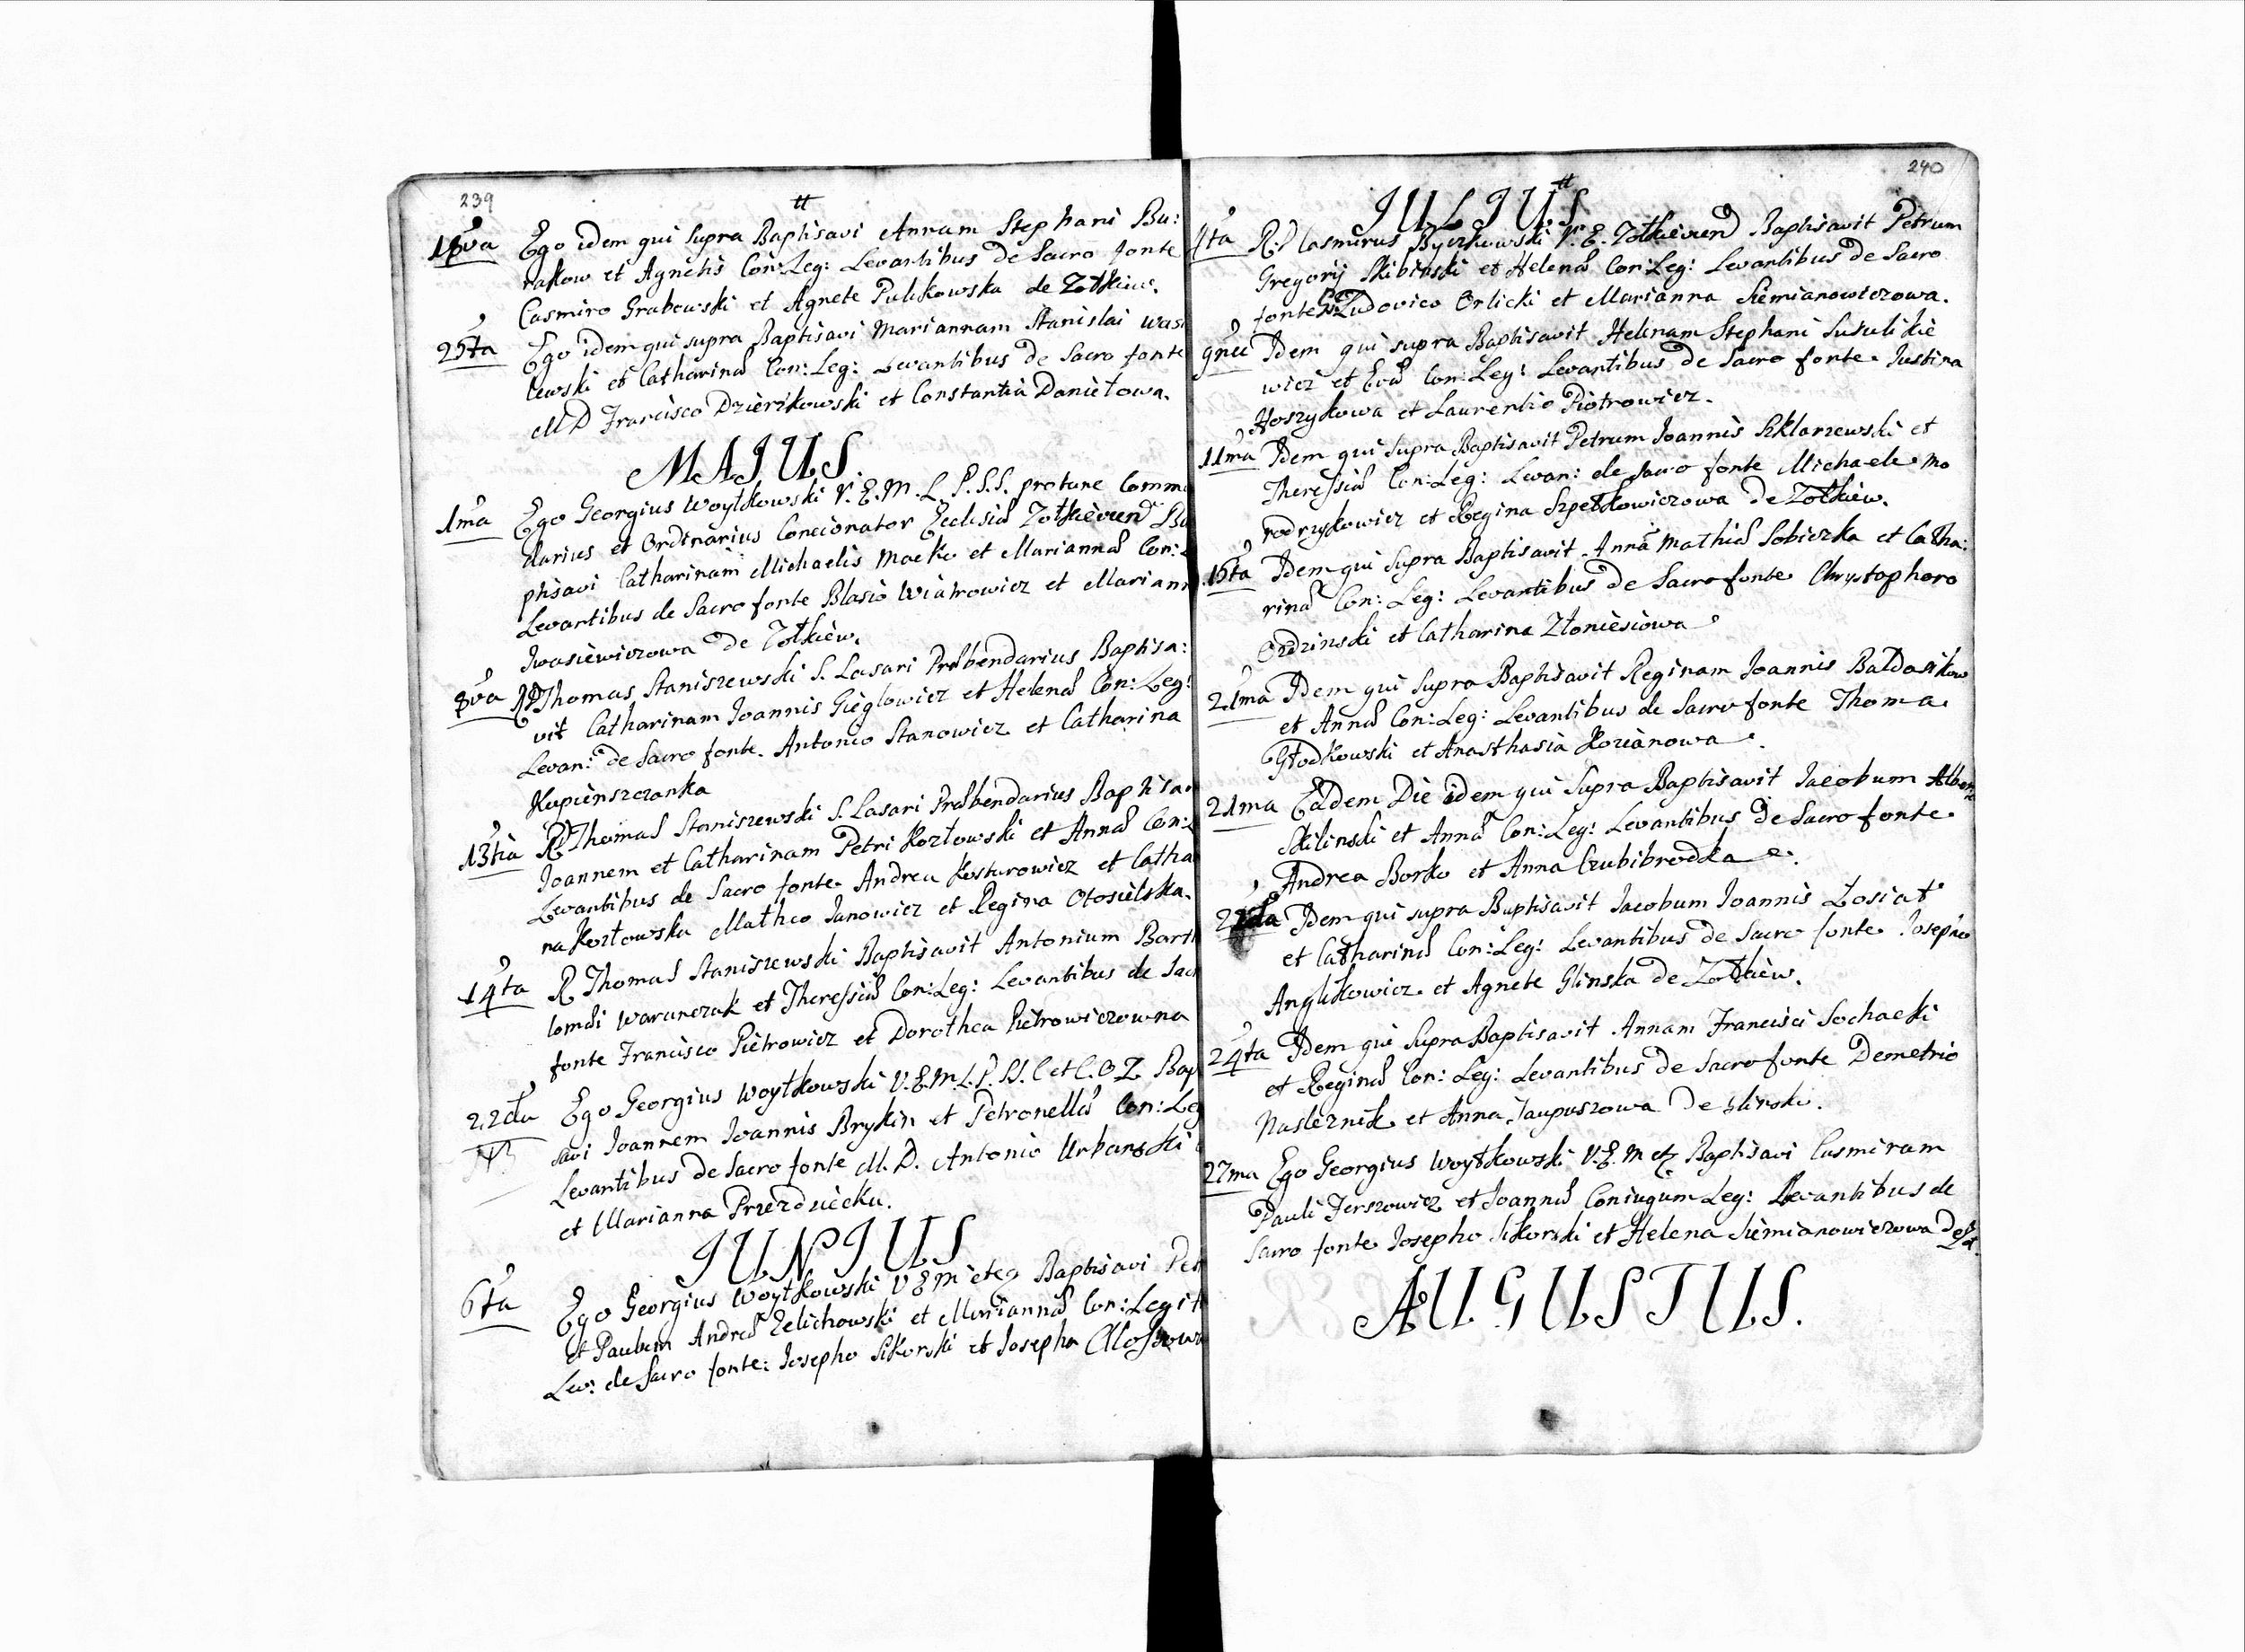 239
18va Ego idem qui Supra Baptisavi Annam Stephani Bu:
rakow et Agnetis Con: Leg: Levantibus de Sacro fonte
Casmiro Grabowski et Agnete Pulikowska de Zołkiew.
25ta Ego idem qui supra Baptisavi Mariannam Stanislai Wasi
lewski et Catharinæ Con: Leg: Levantibus de Sacro fonte
M D Francisco Dzierzkowski et Constantia Daniełowa.
MAJUS
1ma Ego Georgius Woytkowski V. E. M. L. P. S.S. protunc Comme
darius et Ordinarius Concionator Ecclesiæ Zołkieven Ba
ptisavi Catharinam Michaelis Macko et Mariannæ Con:
Levantibus de Sacro fonte Blasio Wiatrowicz et Mariann
Iwasiewiczowa de Zołkiew.
8va RD Thomas Staniszewski S. Lasari Præbendarius Baptisa:
vit Catharinam Joannis Gieglowicz et Helenæ Con: Leg:
Levan: de Sacro fonte. Antonio Stanowicz et Catharina
Kupienszczanka
13tia RD Thomas Staniszewski S. Lasari Præbendarius Baptisa
Joannem et Catharinam Petri Kozłowski et Annæ Con:
Levantibus de Sacro fonte Andrea Kosturowicz et Catha
na Kozłowska Matheo Janowicz et Regina Otosielska.
14ta R Thomas Staniszewski Baptisavit Antonium Barth
lomæi Waranczak et Theressiæ Con: Leg: Levantibus de Sac
fonte Francisco Pietrowicz et Dorothea Pietrowiczowna
22da Ego Georgius Woytkowski V. E. M. L. P. SS. C et C. O Z. Bap
NB savi Joannem Joannis Brykin et Petronellæ Con: Leg
Levantibus de Sacro fonte M. D. Antonio Urbanski
et Marianna Przezdziecka.
JUNIUS
6ta Ego Georgius Woytkowski V E M etc Baptisavi Pet
et Paulum Andreæ Zelichowski et Mariannæ Con: Legit
Lev: de Sacro fonte: Josepho Sikorski et Josepha
240
JULIUS
4ta R. D Casmirus Byczkowski V. E. Zołkieven Baptisavit Petrum
Gregorij Skibinski et Helenæ Con: Leg: Levantibus de Sacro
fonte G: Ludovico Orlicki et Marianna Siemianowiczowa.
9na Idem qui supra Baptisavit Helenam Stephani Susulikie
wicz et Evæ Con: Leg: Levantibus de Sacro fonte Justina
Hoszykowa et Laurentio Piotrowicz.
11ma Idem qui Supra Baptisavit Petrum Joannis Szklarzewski et
Theressiæ Con: Leg: Levan: de sacro fonte Michaele Mo
rodrzykowicz et Regina Szpetkowiczowa de Zołkiew.
15ta Idem qui Supra Baptisavit Annã Mathiæ Sobiczka et Catha:
rinæ Con: Leg: Levantibus de Sacro fonte Chrystophoro
Ordzinski et Catharina Złoniesiowa
21ma Idem qui Supra Baptisavit Reginam Joannis Baldasikow
et Annæ Con: Leg: Levantibus de Sacro fonte Thoma
Głodkowski et Anasthasia Korianowa.
21ma Eadem Die idem qui Supra Baptisavit Jacobum Alberti
Skilinski et Annæ Con: Leg: Levantibus de Sacro fonte
Andrea Borko et Anna Czubibrodka.
22da Idem qui supra Baptisavit Jacobum Joannis Łosiat
et Catharinæ Con: Leg: Levantibus de Sacro fonte Josepho
Anglikowicz et Agnete Glinska de Zołkiew.
24ta Idem qui Supra Baptisavit Annam Francisci Sochacki
et Reginæ Con: Leg: Levantibus de Sacro fonte Demetrio
Nasleznik et Anna Jaupuszowa de Glinsko.
27ma Ego Georgius Woytkowski V. E. M etc Baptisavi Casmiram
Pauli Jerszowicz et Joannæ Coniugum Leg: Levantibus de
Sacro fonte Josepho Sikorski et Helena Siemianowiczowa
AUGUSTUS.